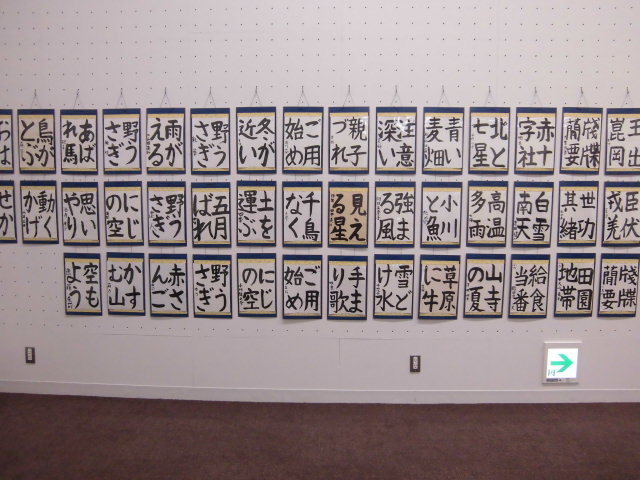 玉出崑岡
牋牒簡要
赤十字社
北と七星
青い麦畑
注意深い
親子づれ
ご用始め
冬が近い
野うさぎ
雨がえる
野うさぎ
あばれ馬
鳥がとぶ
おは
臣伏戎羌
世功其緒
白雪南天
高温多雨
小川と魚
強まる風
見える星
千鳥なく
土を運ぶ
五月ばれ
野うさぎ
にじの空
思いやり
動くかげ
せか
牋牒簡要
田園地帯
給食当番
山寺の夏
草原に牛
雪どけ水
手まり歌
ご用始め
にじの空
野うさぎ
赤さんご
かすむ山
空もよう